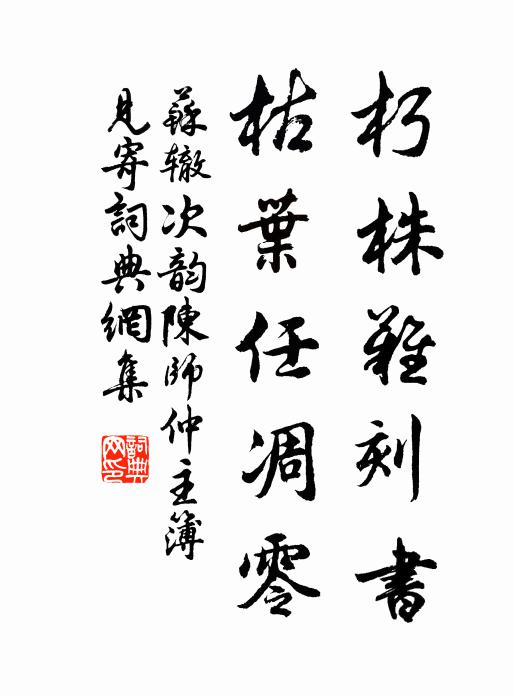 朽株難刻書
枯葉任凋零
蘇轍次韵陳師仲主簿
見寄詞典網集
詞典网印